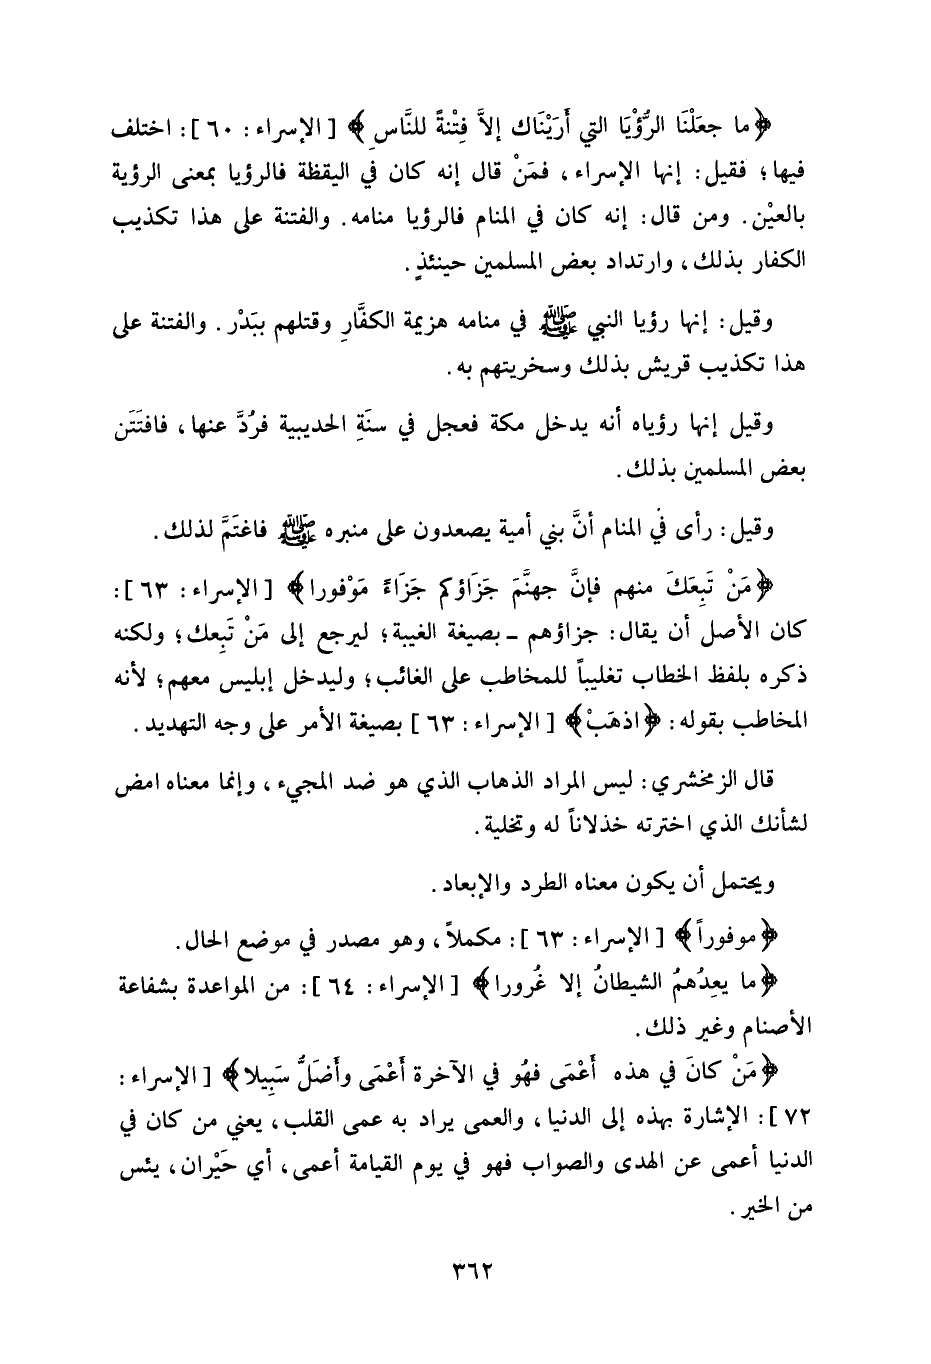 ﴿ما جعَلْنَا الرُّؤْيَا التي أَرَيْنَاك إلاَّ فِتْنةً للنَّاسِ﴾ [الإسراء: ٦٠]: اختلف
فيها؛ فقيل: إنها الإسراء، فمَنْ قال إنه كان في اليقظة فالرؤيا بمعنى الرؤية
بالعيْن. ومن قال: إنه كان في المنام فالرؤيا منامه. والفتنة على هذا تكذيب
الكفار بذلك، وارتداد بعض المسلمين حينئذٍ.
وقيل: إنها رؤيا النبي ﷺ في منامه هزيمة الكفَّارِ وقتلهم ببَدْر. والفتنة على
هذا تكذيب قريش بذلك وسخريتهم به.
وقيل إنها رؤياه أنه يدخل مكة فعجل في سنَةِ الحديبية فرُدَّ عنها، فافتَتَن
بعض المسلمين بذلك.
وقيل: رأى في المنام أنَّ بني أمية يصعدون على منبره ﷺ فاغتَمَّ لذلك.
﴿مَنْ تَبِعَكَ منهم فإنَّ جهنَّمَ جَزَاؤكم جَزَاءً مَوْفورا﴾ [الإسراء: ٦٣]:
كان الأصل أن يقال: جزاؤهم ــ بصيغة الغيبة؛ ليرجع إلى مَنْ تَبِعك؛ ولكنه
ذكره بلفظ الخطاب تغليباً للمخاطب على الغائب؛ وليدخل إبليس معهم؛ لأنه
المخاطب بقوله: ﴿اذهَبْ﴾ [الإسراء: ٦٣] بصيغة الأمر على وجه التهديد.
قال الزمخشري: ليس المراد الذهاب الذي هو ضد المجيء، وإنما معناه امض
لشأنك الذي اخترته خذلاناً له وتخلية.
ويحتمل أن يكون معناه الطرد والإبعاد.
﴿موفوراً﴾ [الإسراء: ٦٣]: مكملاً، وهو مصدر في موضع الحال.
﴿ما يعِدُهمُ الشيطانُ إلا غُرورا﴾ [الإسراء: ٦٤]: من المواعدة بشفاعة
الأصنام وغير ذلك.
﴿مَنْ كانَ في هذه أَعْمَى فهُو في الآخرة أَعْمَى وأَضَلُّ سَبِيلا﴾ [الإسراء:
٧٢]: الإشارة بهذه إلى الدنيا، والعمى يراد به عمى القلب، يعني من كان في
الدنيا أعمى عن الهدى والصواب فهو في يوم القيامة أعمى، أي حَيْران، يئس
من الخير.
٣٦٢